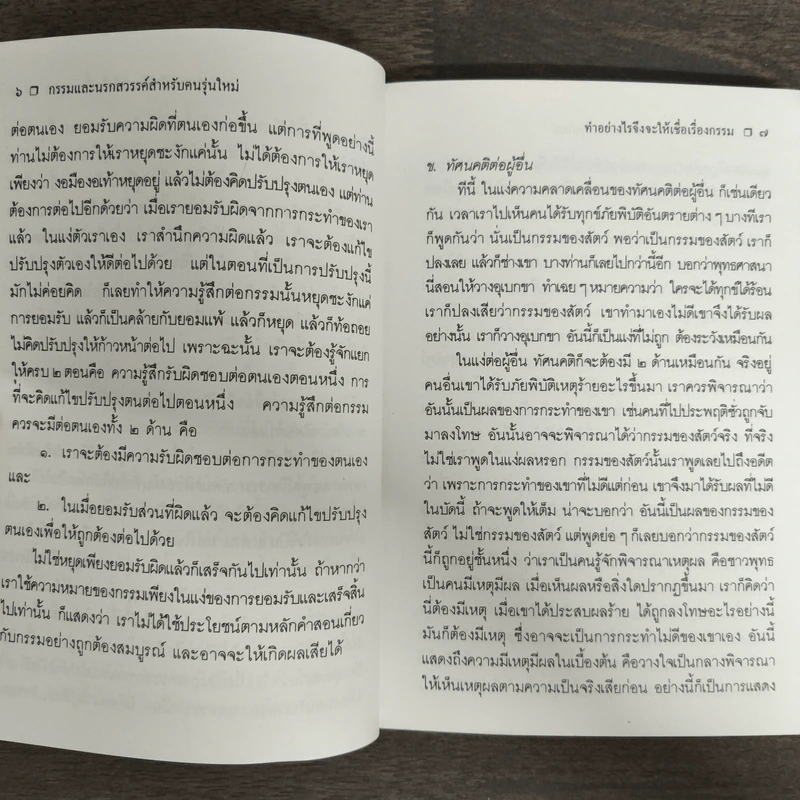 ๖ ❐ กรรมและนรกสวรรค์สำหรับคนรุ่นใหม่
ต่อตนเอง ยอมรับความผิดที่ตนเองก่อขึ้น แต่การที่พูดอย่างนี้
ท่านไม่ต้องการให้เราหยุดชะงักแค่นั้น ไม่ได้ต้องการให้เราหยุด
เพียงว่า งอมืองอเท้าหยุดอยู่ แล้วไม่ต้องคิดปรับปรุงตนเอง แต่ท่าน
ต้องการต่อไปอีกด้วยว่า เมื่อเรายอมรับผิดจากการกระทำของเรา
แล้ว ในแง่ตัวเราเอง เราสำนึกความผิดแล้ว เราจะต้องแก้ไข
ปรับปรุงตัวเองให้ดีต่อไปด้วย แต่ในตอนที่เป็นการปรับปรุงนี้
มักไม่ค่อยคิด ก็เลยทำให้ความรู้สึกต่อกรรมนั้นหยุดชะงักแค่
การยอมรับ แล้วก็เป็นคล้ายกับยอมแพ้ แล้วก็หยุด แล้วก็ท้อถอย
ไม่คิดปรับปรุงให้ก้าวหน้าต่อไป เพราะฉะนั้น เราจะต้องรู้จักแยก
ให้ครบ ๒ ตอนคือ ความรู้สึกรับผิดชอบต่อตนเองตอนหนึ่ง การ
ที่จะคิดแก้ไขปรับปรุงตนต่อไปตอนหนึ่ง ความรู้สึกต่อกรรม
ควรจะมีต่อตนเองทั้ง ๒ ด้าน คือ
๑. เราจะต้องมีความรับผิดชอบต่อการกระทำของตนเอง
และ
๒. ในเมื่อยอมรับส่วนที่ผิดแล้ว จะต้องคิดแก้ไขปรับปรุง
ตนเองเพื่อให้ถูกต้องต่อไปด้วย
ไม่ใช่หยุดเพียงยอมรับผิดแล้วก็เสร็จกันไปเท่านั้น ถ้าหากว่า
เราใช้ความหมายของกรรมเพียงในแง่ของการยอมรับและเสร็จสิ้น
ไปเท่านั้น ก็แสดงว่า เราไม่ได้ใช้ประโยชน์ตามหลักคำสอนเกี่ยว
กับกรรมอย่างถูกต้องสมบูรณ์ และอาจจะให้เกิดผลเสียได้
ทำอย่างไรจึงจะให้เชื่อเรื่องกรรม ❐ ๗
ข. ทัศนคติต่อผู้อื่น
ทีนี้ ในแง่ความคลาดเคลื่อนของทัศนคติต่อผู้อื่น ก็เช่นเดียว
กัน เวลาเราไปเห็นคนได้รับทุกข์ภัยพิบัติอันตรายต่าง ๆ บางทีเรา
ก็พูดกันว่า นั่นเป็นกรรมของสัตว์ พอว่าเป็นกรรมของสัตว์ เราก็
ปลงเลย แล้วก็ช่างเขา บางท่านก็เลยไปกว่านี้อีก บอกว่าพุทธศาสนา
นี่สอนให้วางอุเบกขา ทำเฉย ๆ หมายความว่า ใครจะได้ทุกข์ได้ร้อน
เราก็ปลงเสียว่ากรรมของสัตว์ เขาทำมาเองไม่ดีเขาจึงได้รับผล
อย่างนั้น เราก็วางอุเบกขา อันนี้ก็เป็นแง่ที่ไม่ถูก ต้องระวังเหมือนกัน
ในแง่ต่อผู้อื่น ทัศนคติก็จะต้องมี ๒ ด้านเหมือนกัน จริงอยู่
คนอื่นเขาได้รับภัยพิบัติเหตุร้ายอะไรขึ้นมา เราควรพิจารณาว่า
อันนั้นเป็นผลของการกระทำของเขา เช่นคนที่ไปประพฤติชั่วถูกจับ
มาลงโทษ อันนั้นอาจจะพิจารณาได้ว่ากรรมของสัตว์จริง ที่จริง
ไม่ใช่เราพูดในแง่ผลหรอก กรรมของสัตว์นั้นเราพูดเลยไปถึงอดีต
ว่า เพราะการกระทำของเขาที่ไม่ดีแต่ก่อน เขาจึงมาได้รับผลที่ไม่ดี
ในบัดนี้ ถ้าจะพูดให้เต็ม น่าจะบอกว่า อันนี้เป็นผลของกรรมของ
สัตว์ ไม่ใช่กรรมของสัตว์ แต่พูดย่อ ๆ ก็เลยบอกว่ากรรมของสัตว์
นี้ก็ถูกอยู่ชั้นหนึ่ง ว่าเราเป็นคนรู้จักพิจารณาเหตุผล คือชาวพุทธ
เป็นคนมีเหตุมีผล เมื่อเห็นผลหรือสิ่งใดปรากฏขึ้นมา เราก็คิดว่า
นี่ต้องมีเหตุ เมื่อเขาได้ประสบผลร้าย ได้ถูกลงโทษอะไรอย่างนี้
มันก็ต้องมีเหตุ ซึ่งอาจจะเป็นการกระทำไม่ดีของเขาเอง อันนี้
แสดงถึงความมีเหตุมีผลในเบื้องต้น คือวางใจเป็นกลางพิจารณา
ให้เห็นเหตุผลตามความเป็นจริงเสียก่อน อย่างนี้ก็เป็นการแสดง